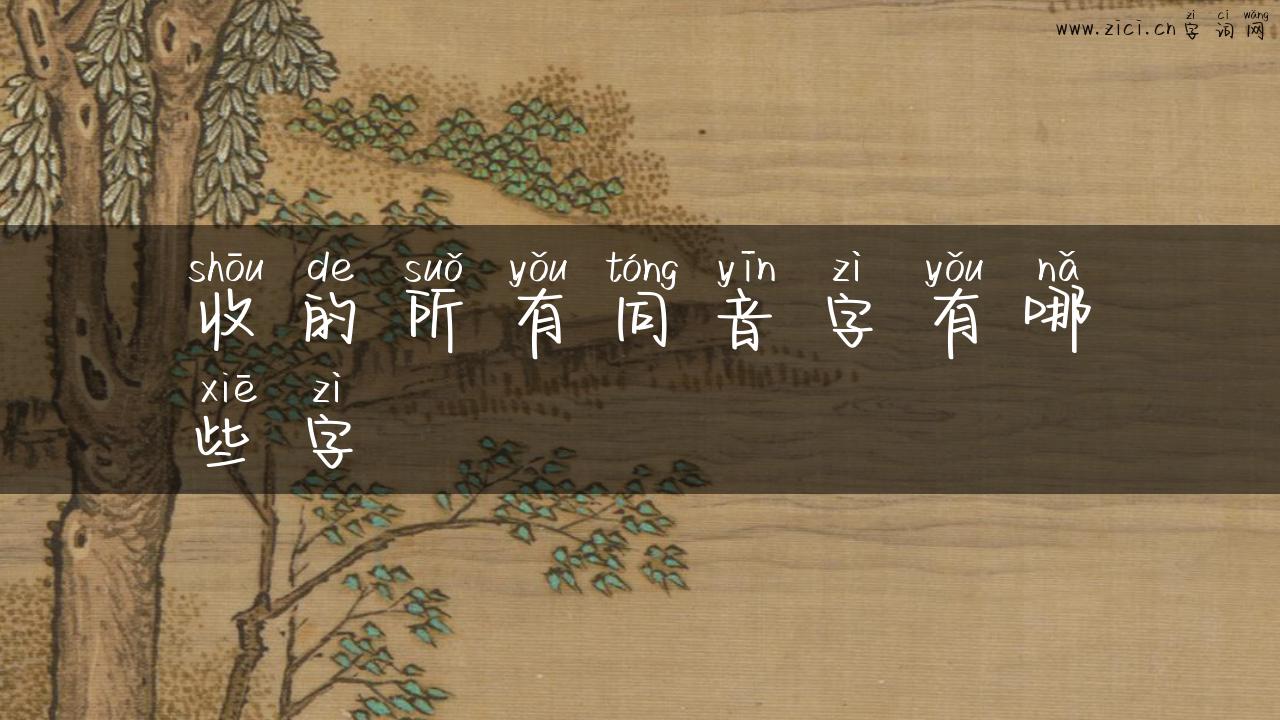 zì cí wǎng
www.zici.cn 字词网
shōu de suǒ yǒu tóng yīn zì yǒu nǎ
收的所有同音字有哪
xiē zì
些字